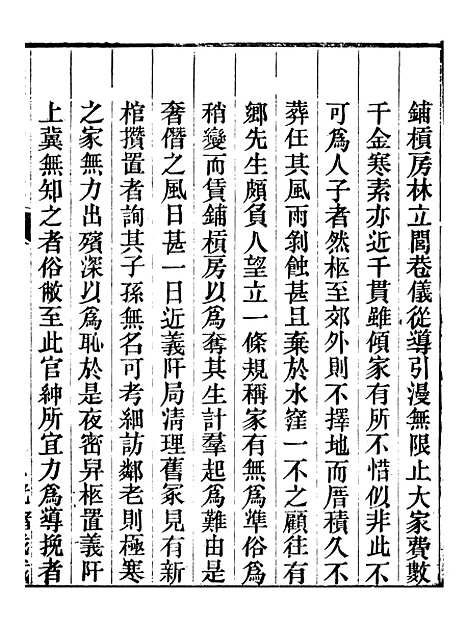 鋪槓房林立閭巷儀從導引漫無限止大家費數
千金寒素亦近千貫雖傾家有所不惜似非此不
可爲人子者然柩至郊外則不擇地而厝積久不
葬任其風雨剝蝕甚且棄於水窪一不之顧往有
鄉先生頗負人望立一條規稱家有無爲準俗爲
稍變而賃鋪槓房以爲奪其生計羣起爲難由是
奢僭之風日甚一日近義阡局淸理舊冢見有新
棺攢置者詢其子孫無名可考細訪鄰老則極寒
之家無力出殯深以爲恥於是夜密舁柩置義阡
上冀無知之者俗敝至此官紳所宜力爲導挽者